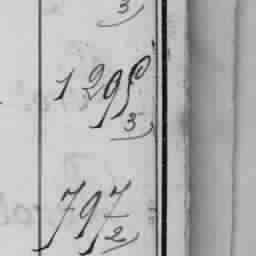 3
129
3
797
2